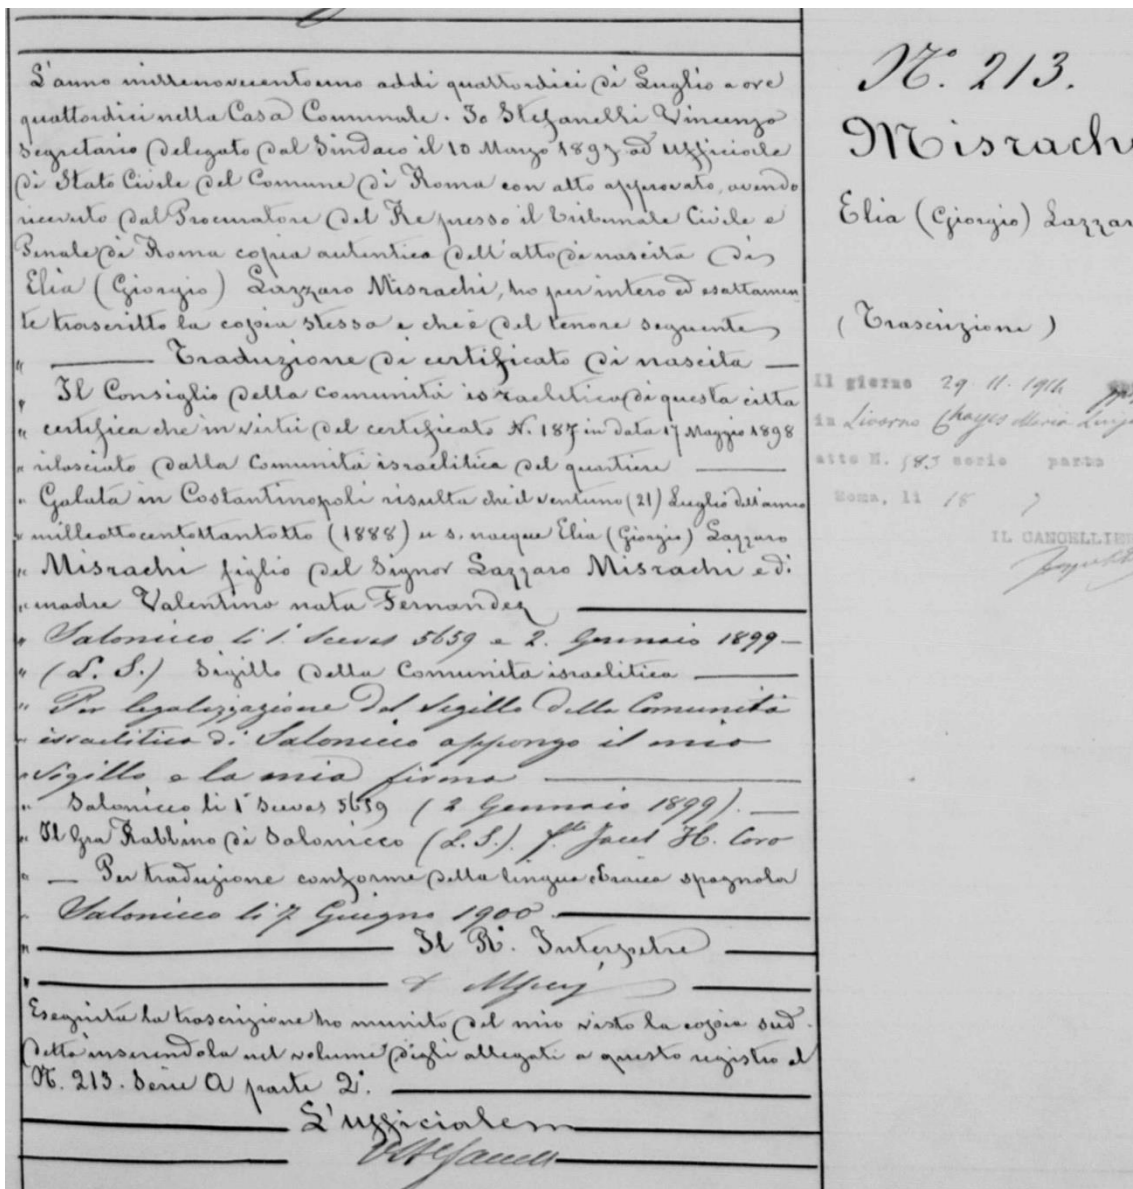 L'anno millenovecentouno addi quattordici di Luglio a ore
quattordici nella Casa Comunale. Io Stefanelli Vincenzo
Segretario delegato dal Sindaco il 10 Marzo 1897 ad Ufficiale
di Stato Civile del Comune di Roma con atto approvato, avendo
ricevuto dal Procuratore del Re presso il Tribunale Civile e
Penale di Roma copia autentica dell'atto di nascita di
Elia (Giorgio) Lazzaro Misrachi, ho per intero ed esattamen-
te trascritto la copia stessa e che è del tenore seguente
" Traduzione di certificato di nascita
" Il Consiglio della comunità israelitica di questa città
" certifica che in virtù del certificato N. 187 in data 17 Maggio 1898
" rilasciato dalla Comunità israelitica del quartiere
" Galata in Costantinopoli risulta che il ventuno (21) Luglio dell'anno
" milleottocentottantotto (1888) u s. nacque Elia (Giorgio) Lazzaro
" Misrachi figlio del Signor Lazzaro Misrachi e di
" madre Valentino nata Fernandez
" Salonicco li 1. Scevat 5659 e 2. Gennaio 1899 —
" (L. S.) Sigillo della Comunità israelitica
" Per legalizzazione del Sigillo della Comunità
" israelitica di Salonicco appongo il mio
" sigillo e la mia firma
" Salonicco li 1° Scevas 5659 (2 Gennaio 1899). —
" Il Gra Rabbino di Salonicco (L. S.). fto Jacob H. Covo
" — Per traduzione conforme della lingua ebraica spagnola
" Salonicco li 7 Giugno 1900.
" Il R°. Interpetre
"
Eseguita la trascrizione ho munito del mio visto la copia sud-
detta inserendola nel volume degli allegati a questo registro al
N. 213. Serie A parte 2ª.
L'Ufficiale
VStefanelli
N° 213.
Misrach
Elia (Giorgio) Lazzar
(Trascrizione)
Il giorno 29. 11. 1914
in Livorno Chayes Maria Luig
atto N. 583 serie parte
Roma, li 18
IL CANCELLIER